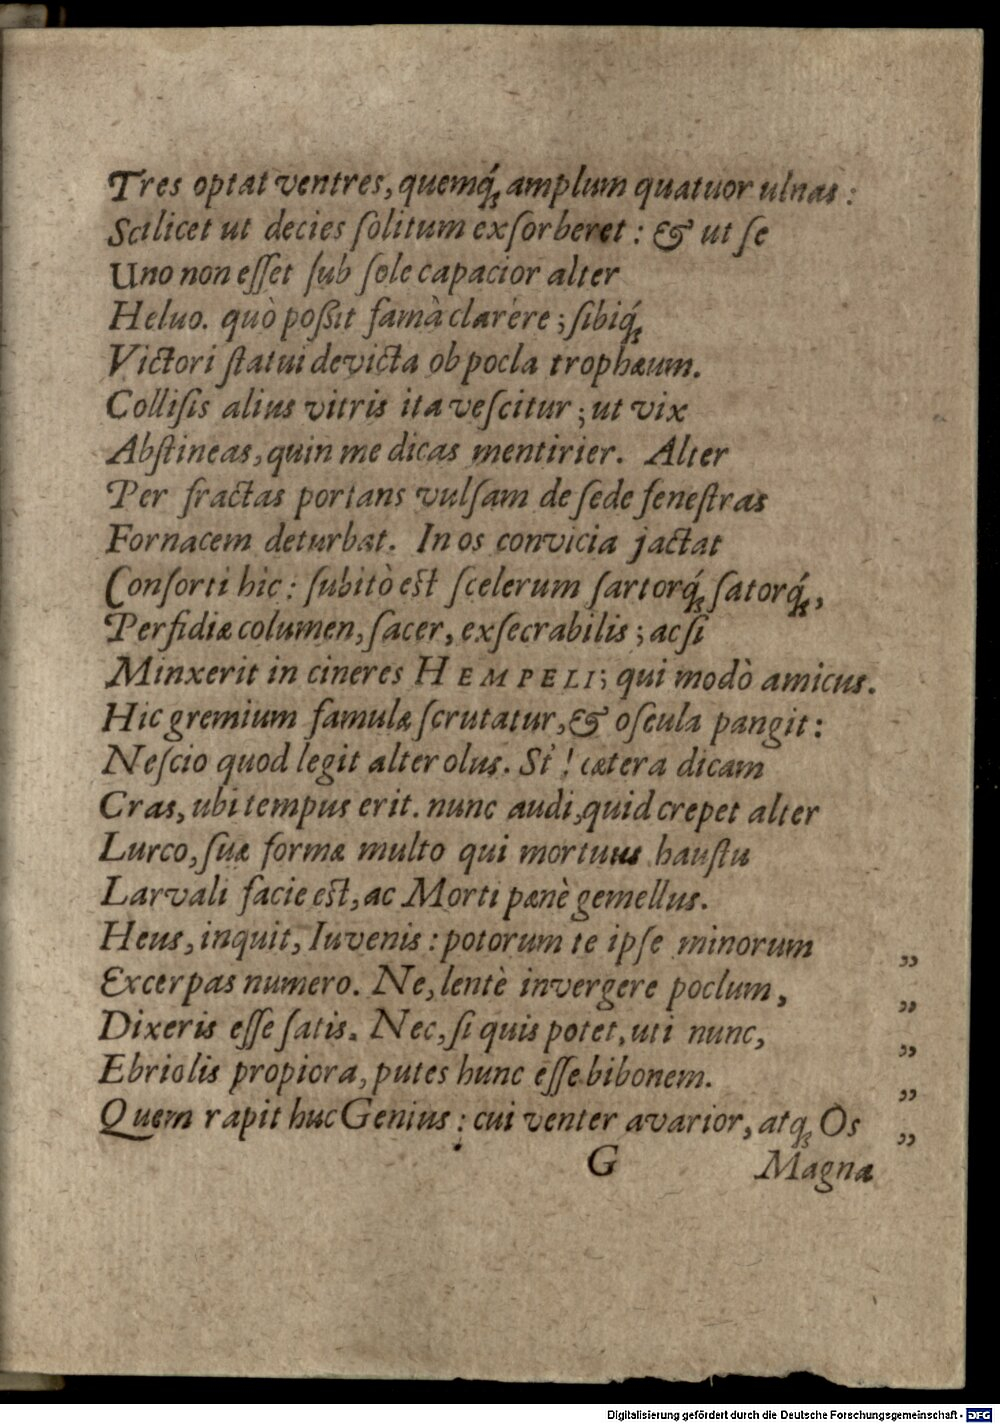 Tres optat ventres, quemq́; amplum quatuor ulnas:
Scilicet ut decies ſolitum exſorberet: & ut ſe
Uno non eſſet ſub ſole capacior alter
Heluo. quò poßit famâ clarére; ſibiq́;
Victori ſtatui devicta ob pocla trophæum.
Colliſis alius vitris ita veſcitur; ut vix
Abſtineas, quin me dicas mentirier. Alter
Per fractas portans vulſam de ſede feneſtras
Fornacem deturbat. In os convicia jactat
Conſorti hic: ſubitò eſt ſcelerum ſartorq́; ſatorq́;,
Perfidiæ columen, ſacer, exſecrabilis; ac ſi
Minxerit in cineres HEMPELI; qui modò amicus.
Hic gremium famulæ ſcrutatur, & oſcula pangit:
Neſcio quod legit alter olus. St'! cætera dicam
Cras, ubi tempus erit. nunc audi, quid crepet alter
Lurco, ſuæ formæ multo qui mortuus hauſtu
Larvali facie eſt, ac Morti pænè gemellus.
Heus, inquit, Iuvenis: potorum te ipſe minorum „
Excerpas numero. Ne, lentè invergere poclum, „
Dixeris eſſe ſatis. Nec, ſi quis potet, uti nunc, „
Ebriolis propiora, putes hunc eſſe bibonem. „
Quem rapit huc Genius: cui venter avarior, atq; Os „
G Magnæ
Digitalisierung gefördert durch die Deutsche Forschungsgemeinschaft - DFG